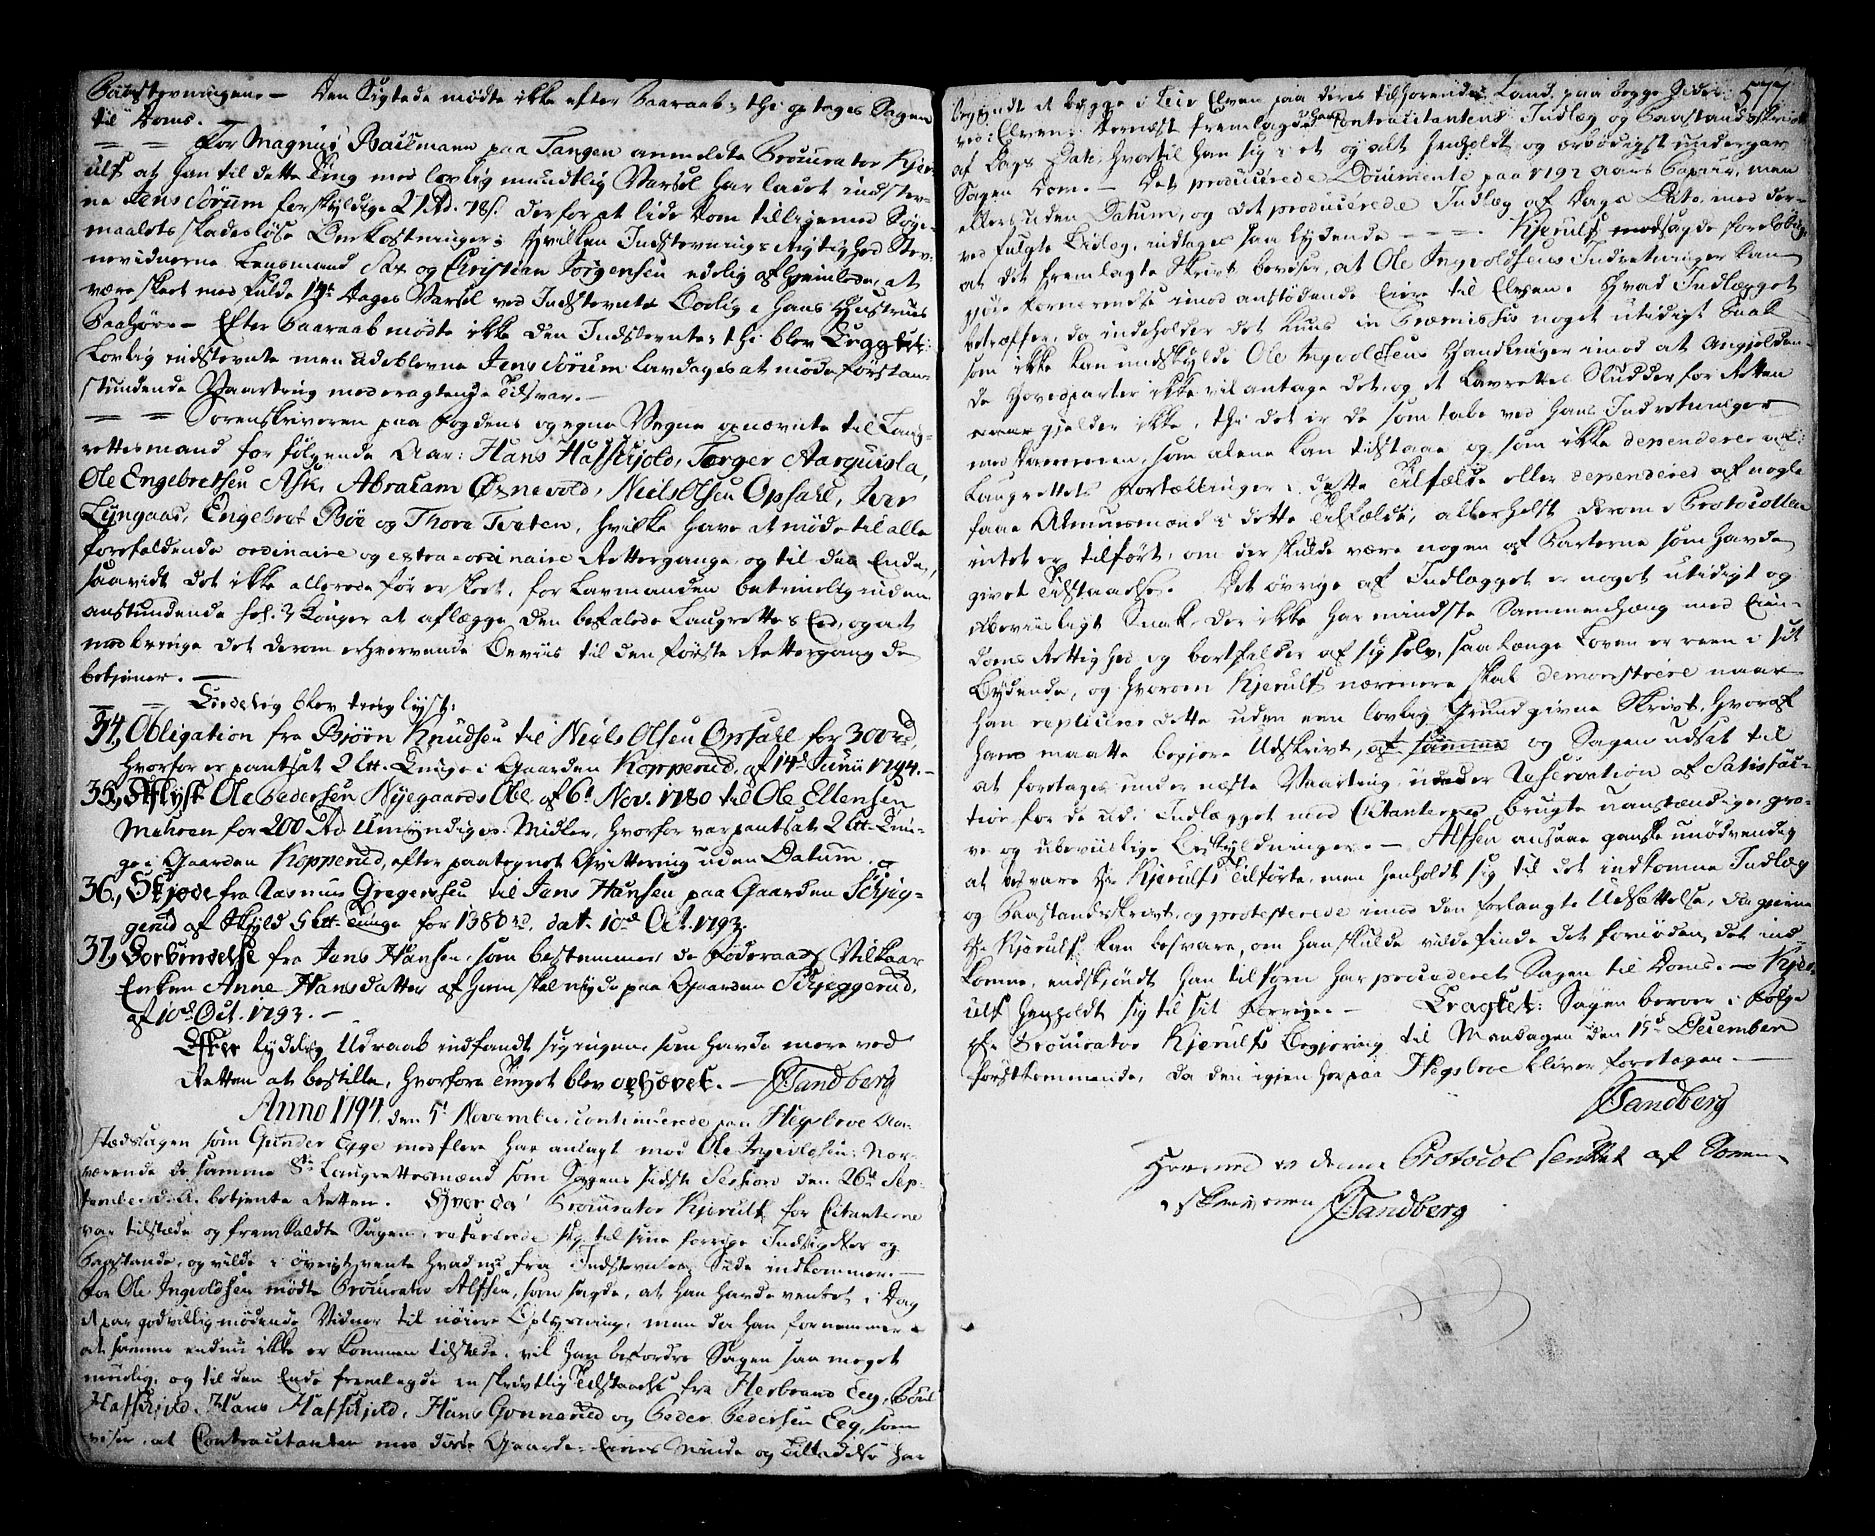 Paastevningen. – Den Sigtede mødte ikke efter Paaraab; thi optages Sagen
til Doms. –
— — For Magnus Bachmann paa Tangen anmeldte Procurator Kjer-
ulf at han til dette Ting med lovlig mundtlig Varsel har ladet indstev-
ne Jens Sørum for skyldige 2 Rd. 78 s. derfor at lide Dom tilligemed Søgs-
maalets skadesløse Omkostninger; Hvilken Indstevnings Rigtighed Stev-
nevidnerne Lensmand Sax og Christian Jørgensen edelig afhjemlede, at
være skeet med fulde 14 Dages Varsel ved Indstevnte Bolig i hans Hustrues
Paahør. – Efter Paaraab mødte ikke den Indstevnte; thi blev
Lovlig indstevnte men udeblevne Jens Sørum Lavdages at møde førstan-
stundende Vaarting med eragtende Tilsvar. –
— — Sorenskriveren paa Fogdens og egne Vegne opnævnte til Laug-
rettesmænd for følgende Aar: Hans Hafschjold, Torger Aarquisla,
Ole Engebretsen Ask, Abraham Øxnevold, Niels Olsen Opsahl, Iver
Lyngaas, Engebret Bøe og Thore Tveten, hvilke have at møde til alle
forefaldende ordinaire og extra-ordinaire Rettergange, og til den Ende,
saavidt det ikke allerede før er skeet, for Lavmanden betimelig inden
anstundende hel. 3 Konger at aflægge den befalede Laugrettes Eed, og at
medbringe det derom erhvervende Beviis til den første Rettergang de
betjener. –
— — Ligeleedes blev tinglyst:
34, Obligation fra Biørn Knudsen til Niels Olsen Opsahl for 300 rd,
hvorfor er pantsat 2 Lt. Tunge i Gaarden Kopperud, af 14d Junii 1794. –
35, Aflyst Ole Pedersen Nyegaards Obl. af 6t Nov. 1780 til Ole Ellensen
Mehren for 200 Rd Umyndiges Midler, hvorfor var pantsat 2 Lt. Tun-
ge i Gaarden Kopperud, efter paategnet Qvittering uden Datum.
36., Skjøde fra Rasmus Gregersen til Jens Hansen paa Gaarden Schjeg-
gerud af Skyld 5 Lt. Tunge for 1380 rd, dat. 10d Oct. 1793.
37, Forbindelse fra Jens Hansen, som bestemmer de Føderaads Vilkaar
Enken Anne Hansdatter af ham skal nyde paa Gaarden Schjeggerud,
af 10d Oct. 1793. –
Efter lydelig Udraab indfandt sig ingen, som havde mere ved
Retten at bestille, hvorfore Tinget blev ophævet. – Sandberg
Anno 1794 den 5t November, continuerede paa Hegsbroe Aa-
stædssagen som Gunder Egge med flere har anlagt mod Ole Ingvoldsen; Nær-
værende de samme 8te Laugrettesmænd som Sagens sidste Session den 26d Sep-
tember d. A. betjente Retten. Hver da Procurator Kjerulf for Citanterne
var tilstede og fremkaldte Sagen, refererede sig til sine forrige Indsigelser og
Paastande, og vilde i øvrigt vente hvad nu fra Indstevntes Side indkommer. –
For Ole Ingvoldsen mødte Procurator Alfsen, som sagde, at han havde ventet i Dag
et par godvillig mødende Vidner til nøiere Oplysning, men da han fornemmer
at samme endnu ikke er kommen tilstede, vil han befordre Sagen saa meget
muelig, og til den Ende fremlagde en skrivtlig Tilstaaelse fra Herbrand Eeg, Poul
Hafschjold, Hans Hafschjold, Hans Gunnerud og Peder Pedersen Eeg, som
viser, at Contracitanten med disse Gaarde-Eieres Minde og Tilladelse har
577
begyndt at bygge i Lier Elven paa deres tilhørende Land, paa begge Sider
ved Elven; dernæst fremlagde han Contracitantens Indlæg og Paastandsskrivt
af Dags Dato, hvortil han sig i et og alt henholdt og ærbødigst undergav
Sagen Dom. – Det producerede Document paa 1792 Aars Papiir, men
ellers uden Datum, og det producerede Indlæg af Dags Dato, med der-
ved fulgte Bilag, indtages saa lydende – – – . Kjerulf modsagde foreløbig
at det fremlagte Skrivt beviser, at Ole Ingvoldsens Indretninger kan
gjøre Fornærmelse imod anstødende Eiere til Elven. Hvad Indlægget
betræffer, da indeholder det kuns in Præmissis noget utidigt Snak
som ikke kan undskylde Ole Ingvoldsens Handlinger imod at angjelden-
de Hovedparter ikke vil antage det, og et Lavrettes Sludder for Retten
gjelder ikke, thi det er de som tabe ved hans Indretninger
med Dammen, som alene kan tilstaae og som ikke dependerer af
Laugrettets Fortællinger i dette Tilfælde eller dependered af nogle
faae Almuesmænd i dette Tilfælde, allerhelst derom i Protocollen
intet er tilført, om der skulde være nogen af Parterne som havde
givet Tilstaaelse. Det øvrige af Indlægget er noget utidigt og
ubeviisligt Snak, der ikke har mindste Sammenhæng med Eien-
doms Rettighed og bortfalder af sig selv, saa længe Loven er reen i sit
Bydende, og hvorom Kjerulf nærmere skal demonstrere naar
han replicerer dette uden een lovlig Grund givne Skrivt, hvoraf
han maatte begjere Udskrivt, af samme og Sagen udsat til
at foretages under næste Vaarting under Reservation af Satisfac-
tion for de udi Indlægget mod Citanterne brugte uanstændige gro-
ve og ubeviislige Beskyldninger. – Alfsen ansaae ganske unødvendig
at besvare Hr Kjerulfs Tilførte, men henholdt sig til det indkomne Indlæg
og Paastandsskrivt, og protesterede imod den forlangte Udsættelse, da gierne
Hr Kjerulf kan besvare, om han skulde vilde finde det fornøden, det ind-
komne, endskjøndt han tilforn har procederet Sagen til Doms. – Kjer-
ulf henholdt sig til sit Forrige. – Eragtet: Sagen beroer i Følge
Hr Procurator Kjerulfs Begjering til Mandagen den 15d December
førstkommende, da den igjen her paa Hegsbroe bliver foretagen. –
Sandberg
Hermed er denne Protocol sluttet af Soren-
skriveren Sandberg